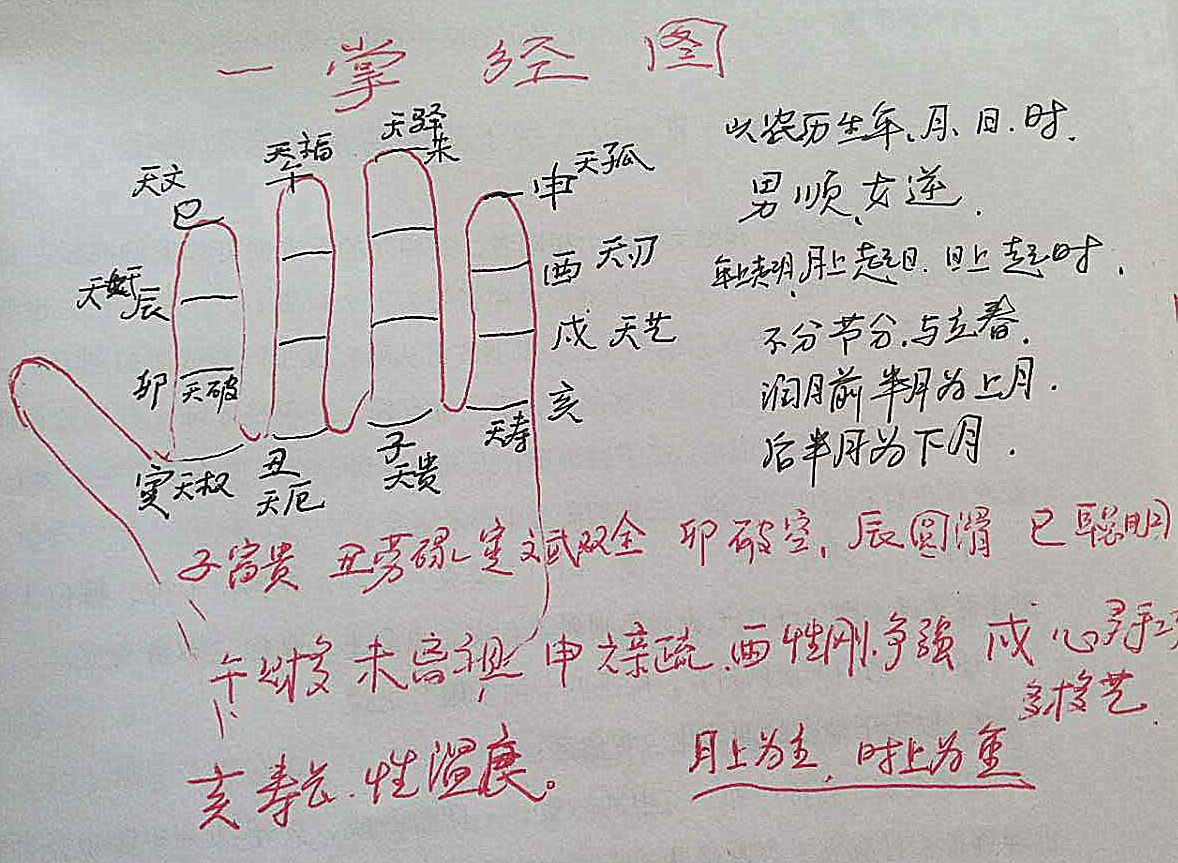 一掌经图
天文
巳
天福
午
天驿
未
申 天孤
酉 天刃
戌 天艺
亥
天寿
辰
卯 天破
寅天权
丑
天厄
子
天贵
以农历生年、月、日、时.
男顺、女逆.
年上起月、月上起日、日上起时.
不分节分、与立春.
润月前半月为上月.
后半月为下月.
子富贵 丑劳碌 寅文武双全 卯破空, 辰圆滑 巳聪明
午财多 未离祖 申六亲疏. 酉性刚争强 戌心灵手巧
多技艺.
亥寿长.性温良。
月上为主,时上为重